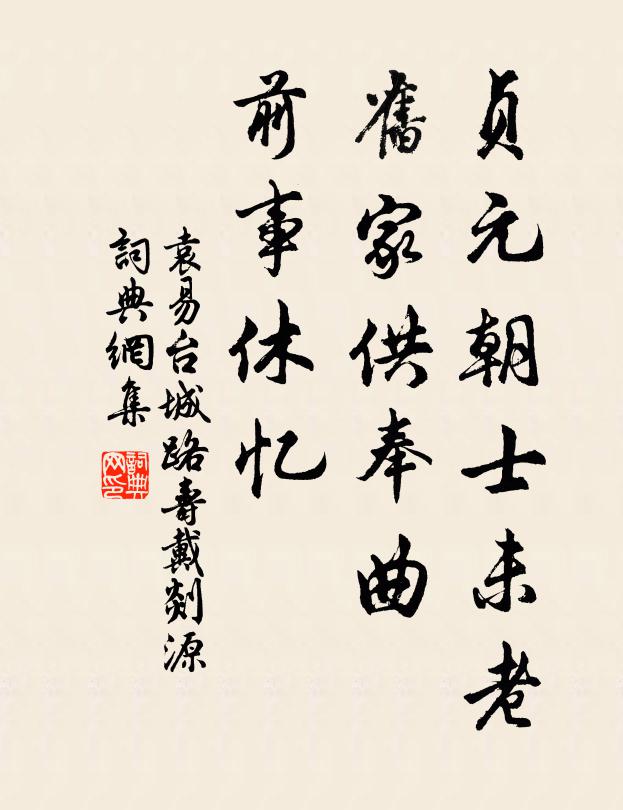 貞元朝士未老
舊家供奉曲
前事休忆
袁易台城路壽戴剡源
詞典網集
詞典网印